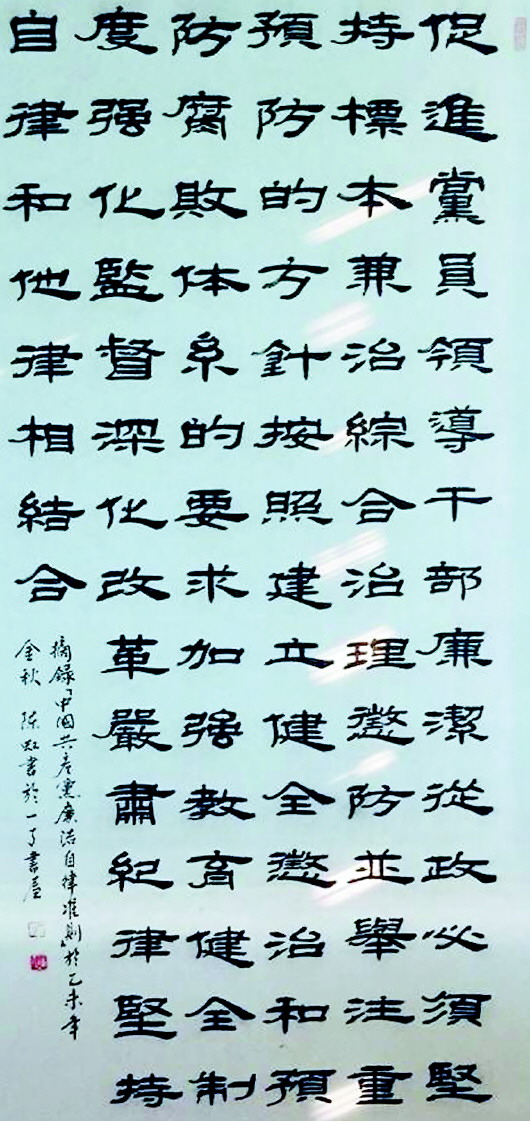 促進黨員領導干部廉潔從政必須堅
持標本兼治綜合治理懲防並舉注重
預防的方針按照建立健全懲治和預
防腐敗体系的要求加强教育健全制
度强化監督深化改革嚴肅紀律堅持
自律和他律相結合
摘録「中國共產黨廉洁自律准則」於乙未年
金秋 陈虹書於一了書屋